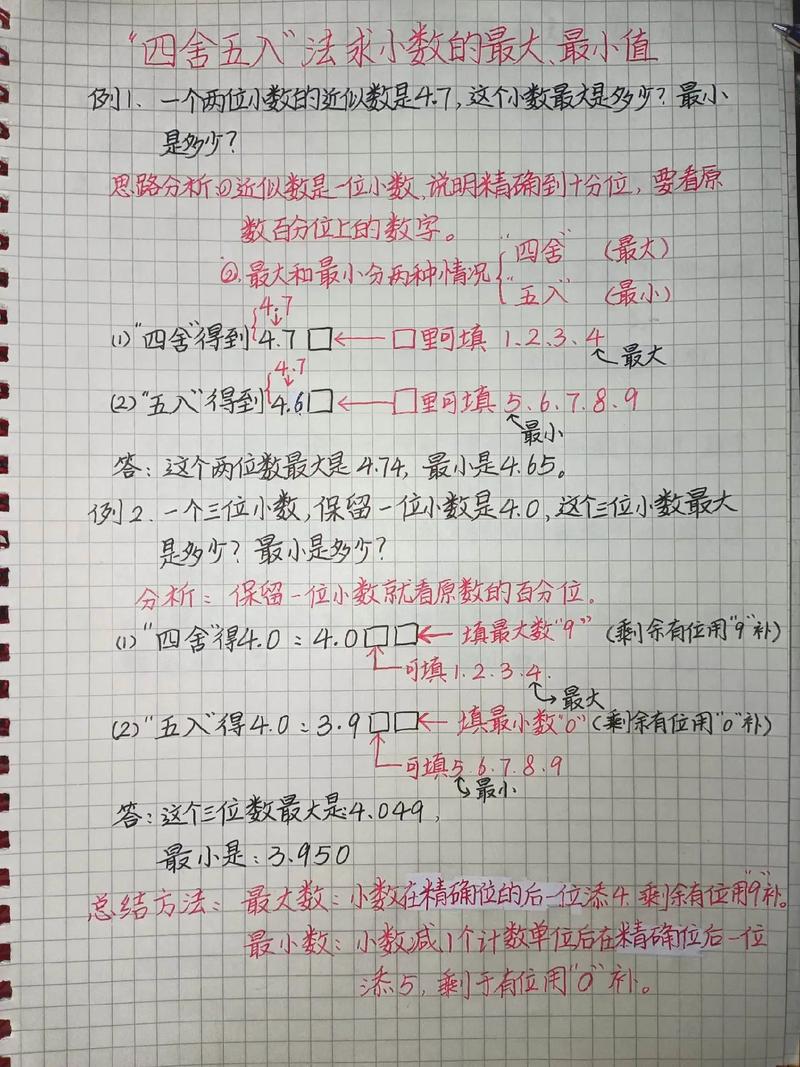 “四舍五入”法求小数的最大、最小值
例1. 一个两位小数的近似数是4.7,这个小数最大是多少?最小
是多少?
思路分析:①近似数是一位小数,说明精确到十分位,要看原
数百分位上的数字。
②.最大和最小分两种情况
“四舍” (最大)
“五入” (最小)
4.7
(1)“四舍”得到 4.7□ ← □里可填 1、2、3、4
最大
4.7
(2)“五入”得到 4.6□ ← □里可填 5、6、7、8、9
最小
答:这个两位数最大是4.74,最小是4.65。
例2. 一个三位小数,保留一位小数是4.0,这个三位小数最大
是多少?最小是多少?
分析:保留一位小数就看原数的百分位。
(1)“四舍”得4.0:4.0□□ ← 填最大数“9” (剩余有位用“9”补)
可填1.2.3.4.
最大
(2)“五入”得4.0:3.9□□ ← 填最小数“0” (剩余有位用“0”补)
可填5.6.7.8.9
最小
答:这个三位数最大是:4.049,
最小是:3.950
总结方法:最大数:小数在精确位的后一位添4.剩余有位用“9”补。
最小数:小数减1个计数单位后在精确位后一位
添5,剩于有位用“0”补。